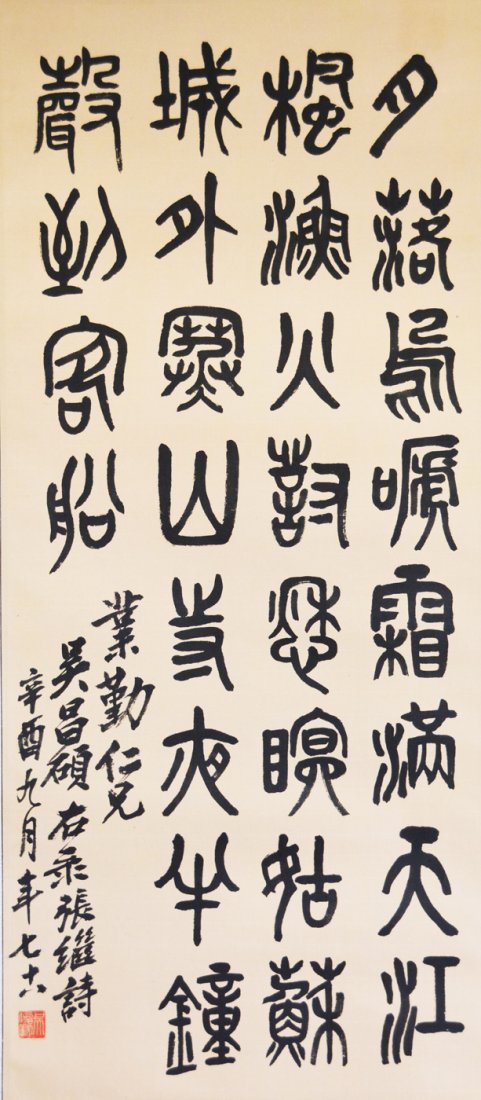 月落烏嗁霜滿天江
楓漁火對愁瞑姑蘇
城外寒山寺夜半鐘
聲到客船
業勤仁兄
吳昌碩右录張繼詩
辛酉九月年七十八